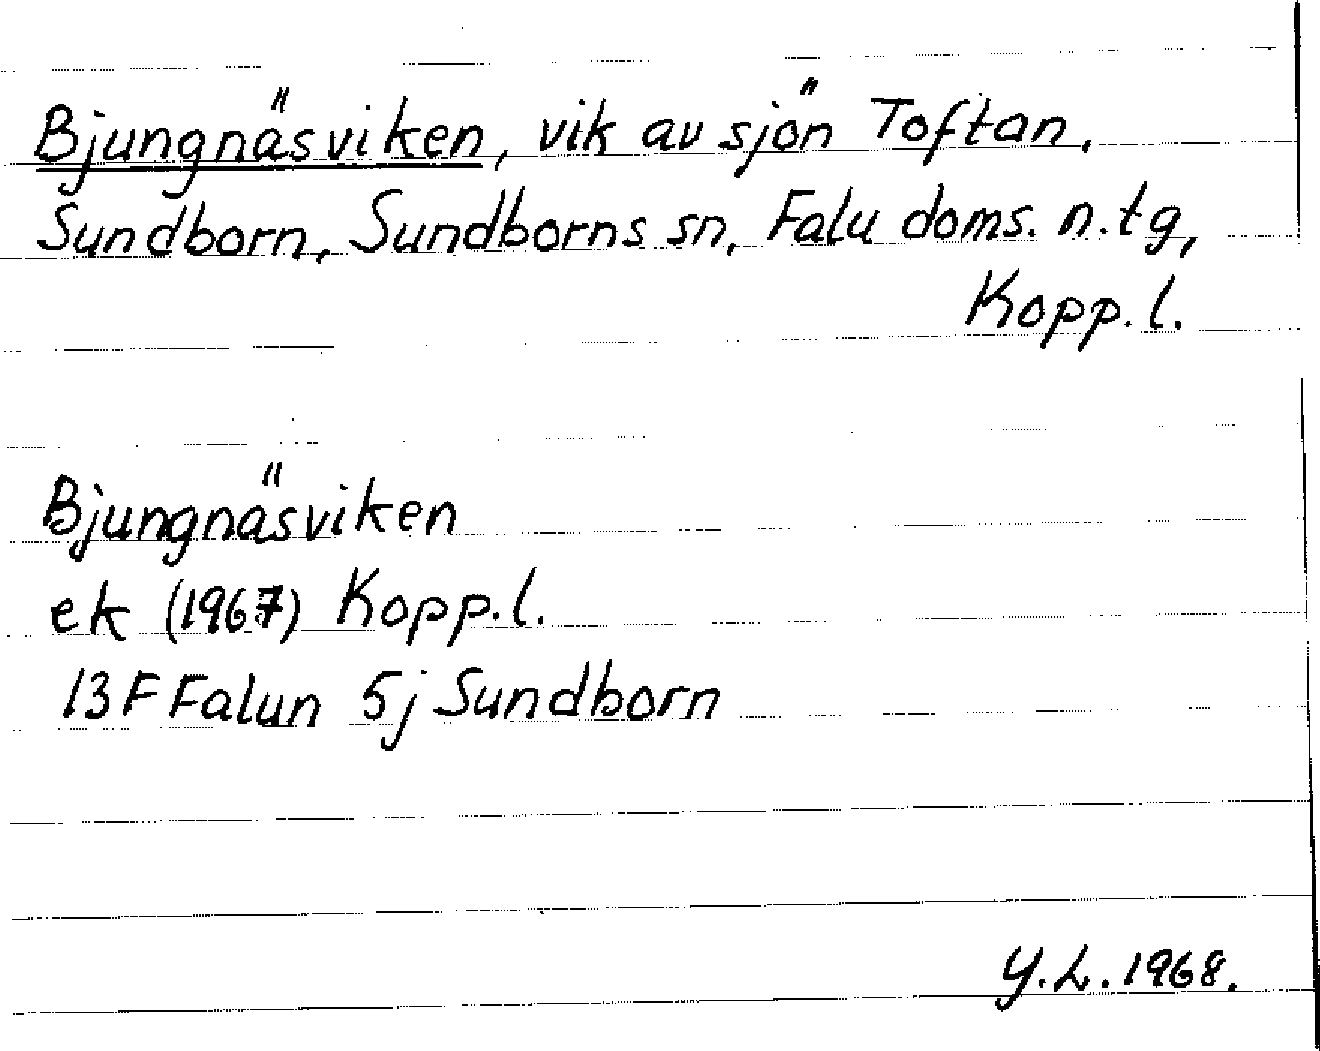 Bjungnäsviken, vik av sjön Toftan,
Sundborn, Sundborns sn, Falu doms. n. tg,
Kopp. l.
Bjungnäsviken
ek (1967) Kopp. l.
13F Falun 5j Sundborn
Y.L. 1968.